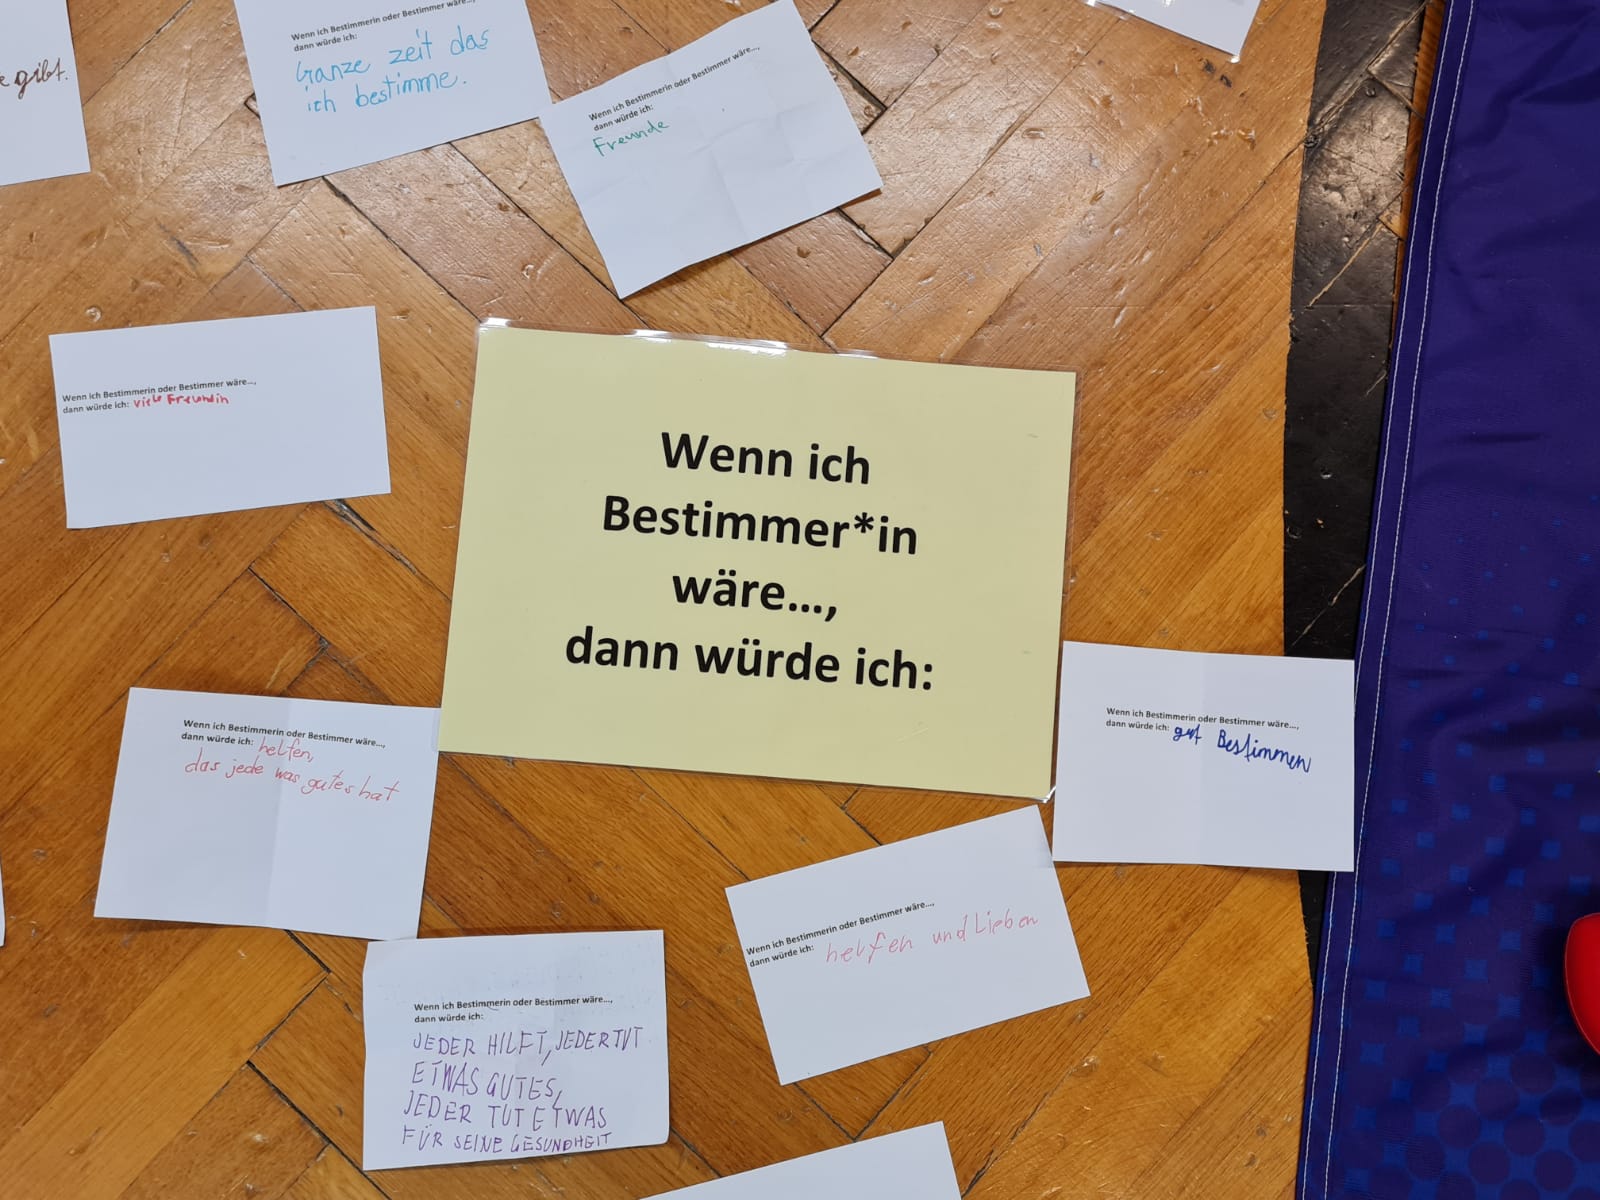 gibt.
Wenn ich Bestimmerin oder Bestimmer wäre...,
dann würde ich:
Ganze zeit das
ich bestimme.
Wenn ich Bestimmerin oder Bestimmer wäre...,
dann würde ich:
Freunde
Wenn ich Bestimmerin oder Bestimmer wäre...,
dann würde ich: viele Freundin
Wenn ich
Bestimmer*in
wäre...,
dann würde ich:
Wenn ich Bestimmerin oder Bestimmer wäre...,
dann würde ich: helfen,
das jede was gutes hat
Wenn ich Bestimmerin oder Bestimmer wäre...,
dann würde ich: gut Bestimmen
Wenn ich Bestimmerin oder Bestimmer wäre...,
dann würde ich: helfen und Lieben
Wenn ich Bestimmerin oder Bestimmer wäre...,
dann würde ich:
JEDER HILFT, JEDER TUT
ETWAS GUTES,
JEDER TUT ETWAS
FÜR SEINE GESUNDHEIT